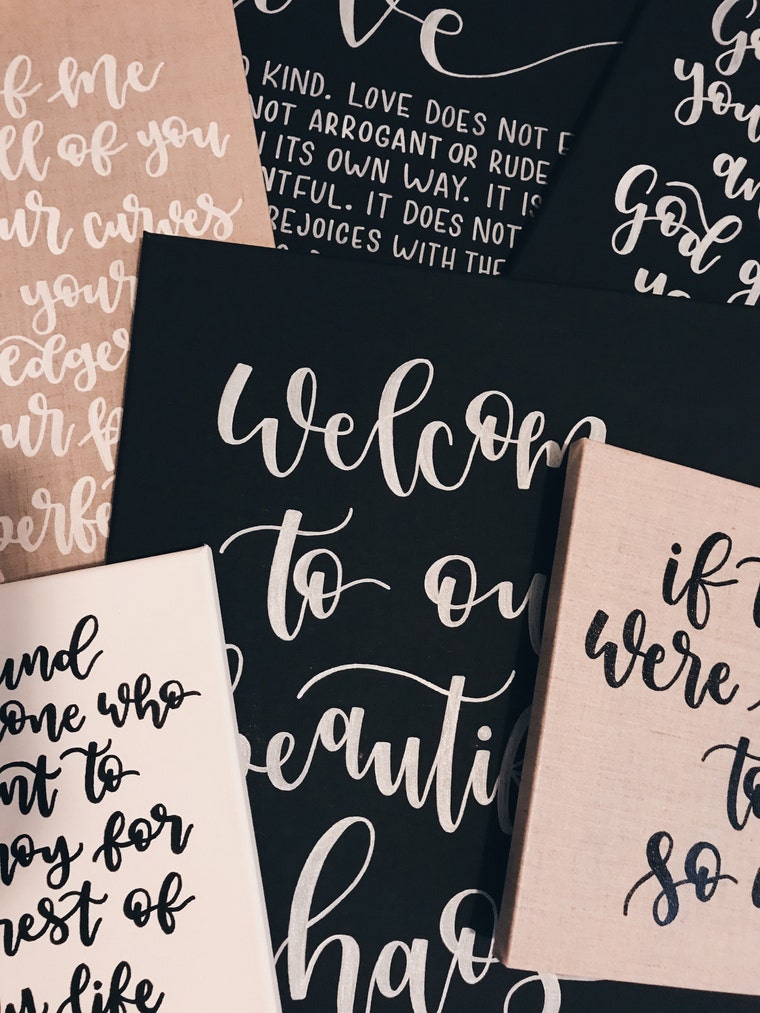 of me
all of you
your curves
your
edges
your p
perfe
love
KIND. LOVE DOES NOT E
NOT ARROGANT OR RUDE
ITS OWN WAY. IT IS
NTFUL. IT DOES NOT
REJOICES WITH THE
God
you
an
God g
yo
welcom
to ou
beautif
chaos
und
one who
nt to
noy for
rest of
my life
if t
were
to
so